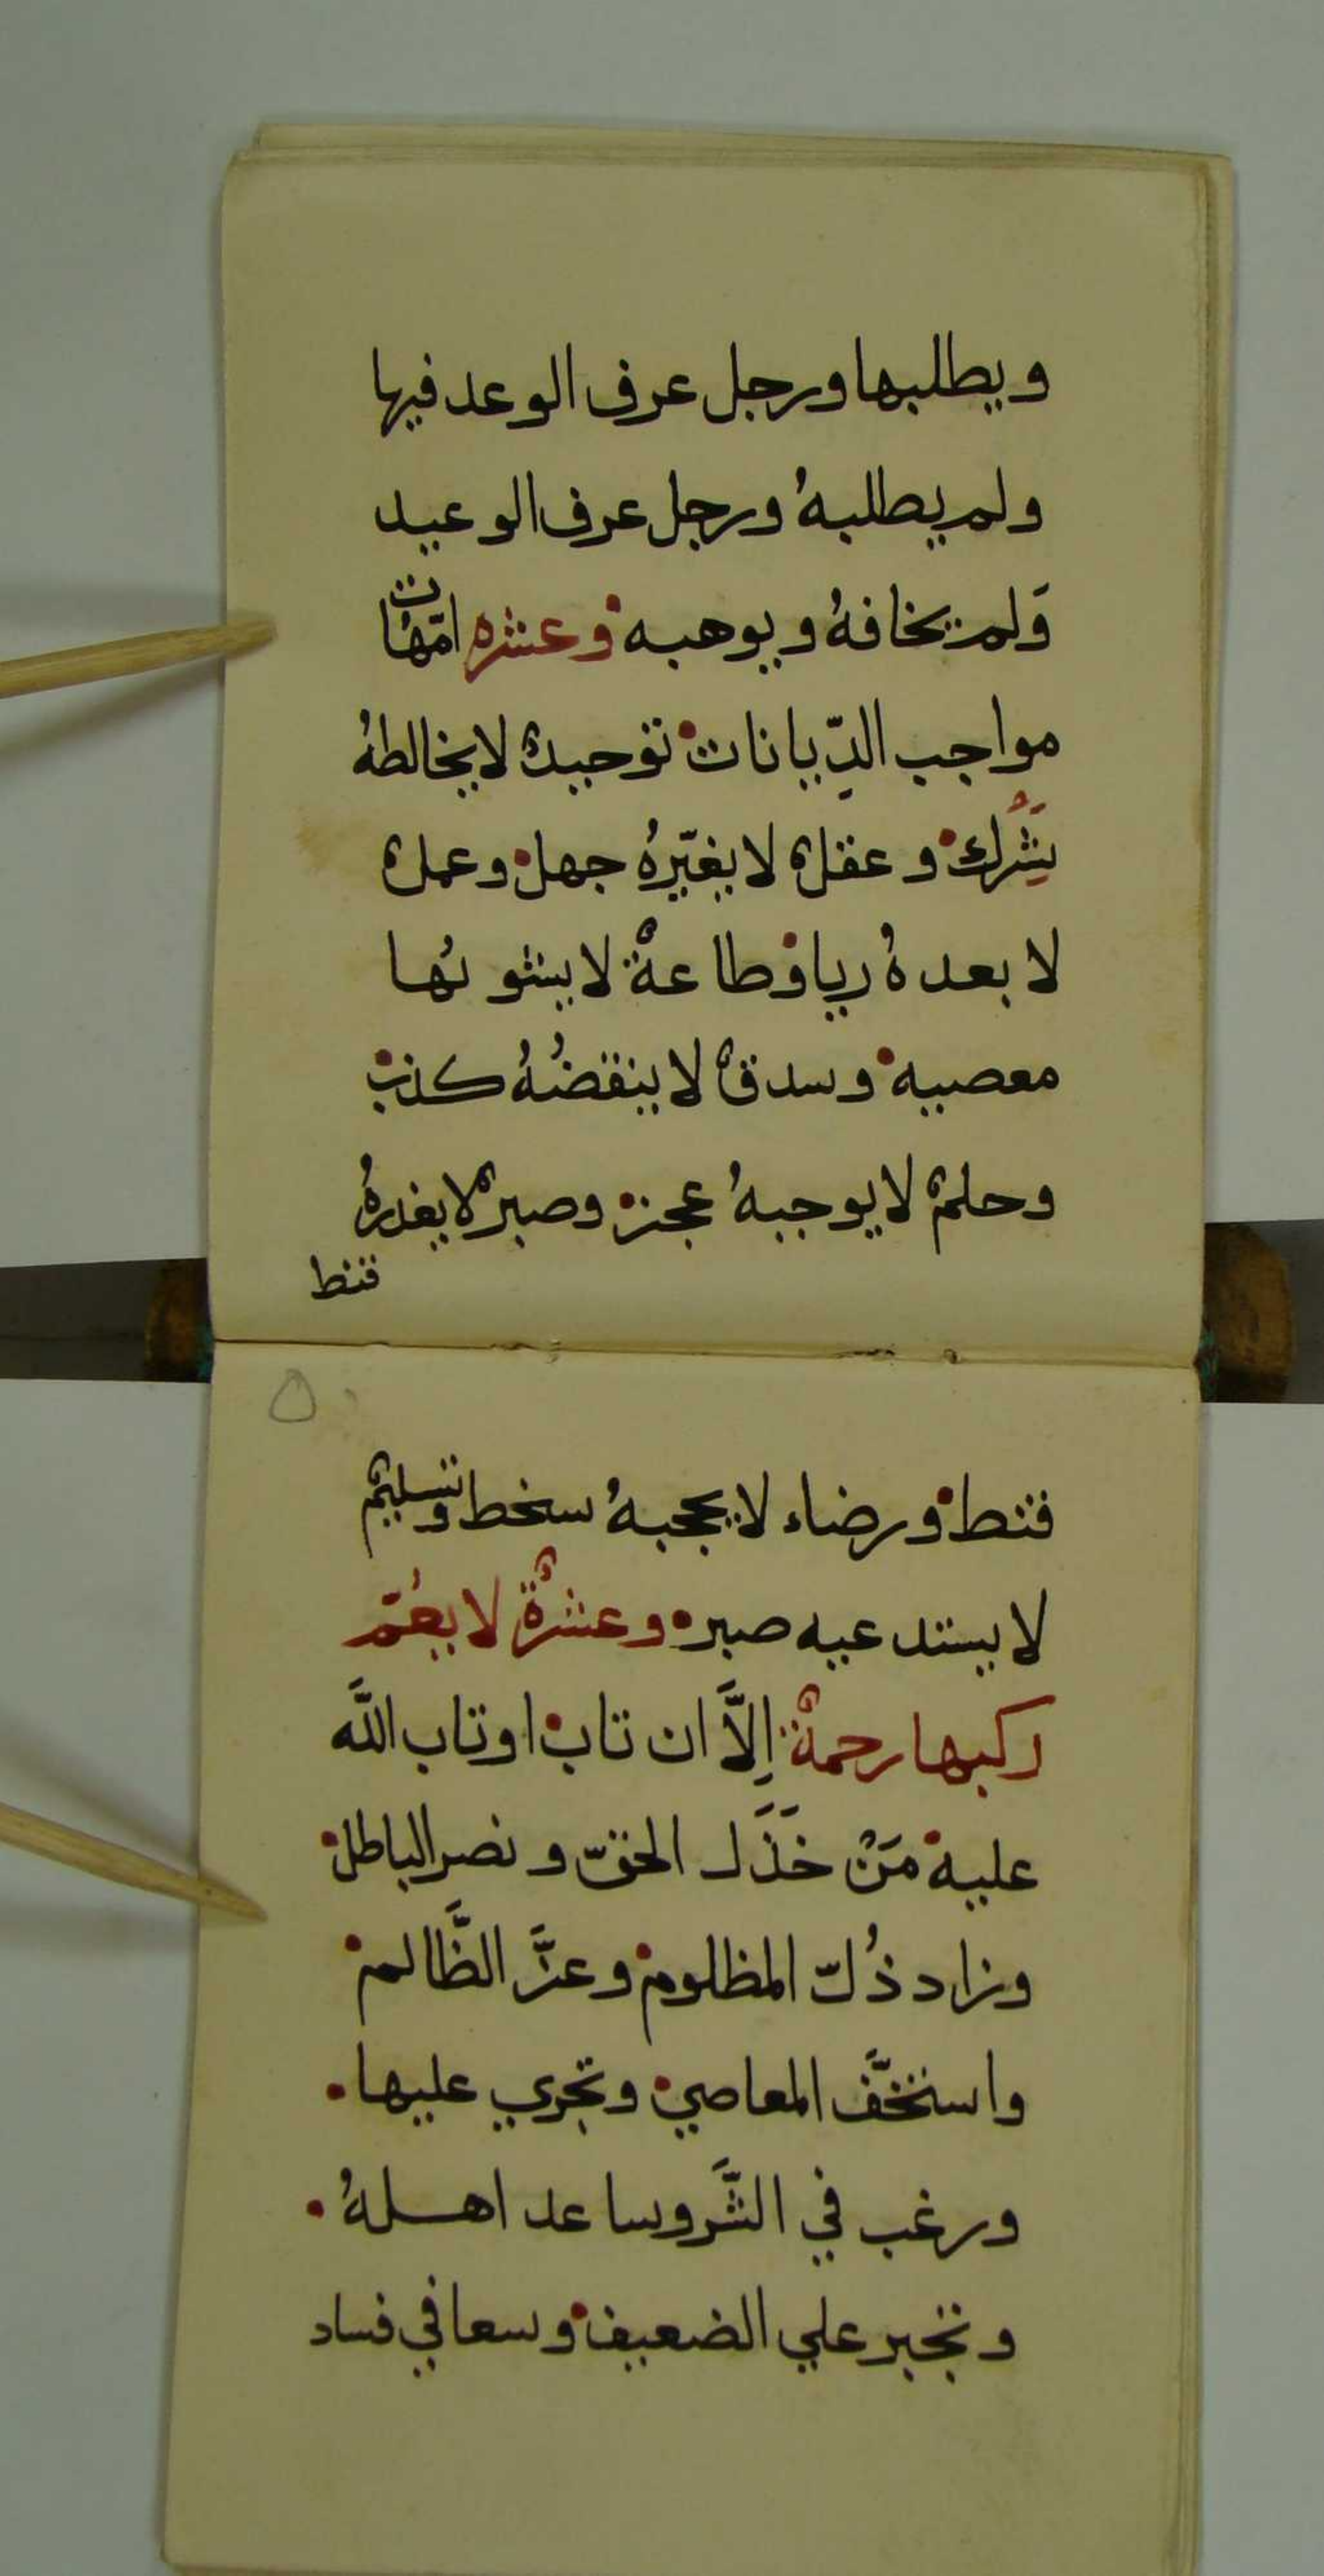 ويطلبها ورجل عرف الوعد فيها
ولم يطلبهُ ورجل عرف الوعيد
وَلم يخافهُ ويوهبه وعشره امّهات
مواجب الدِّيانات توحيدٌ لا يخالطهُ
شِرُك وعقلٌ لا يغيّرهُ جهل وعملٌ
لا بعدهُ ريا وطاعةٌ لا يشونها
معصيه وسدقٌ لا ينقضُهُ كذب
وحلمٌ لا يوجبهُ عجز وصبرٌ لا يغدرهُ
قنط
٥
قنط ورضاء لا يحجبهُ سخط وتسليمٌ
لا يستدعيه صبره وعشرةٌ لا يعُمّ
ركبها رحمةٌ إلاَّ ان تاب او تاب اللَّه
عليه مَنْ خَذَل الحقّ ونصر الباطل
وزاد ذُلّ المظلوم وعزَّ الظَّالم
واستخفَّ المعاصي وتجري عليها
ورغب في الشَّر وساعد اهلهُ
وتجبر علي الضعيف وسعا في فساد